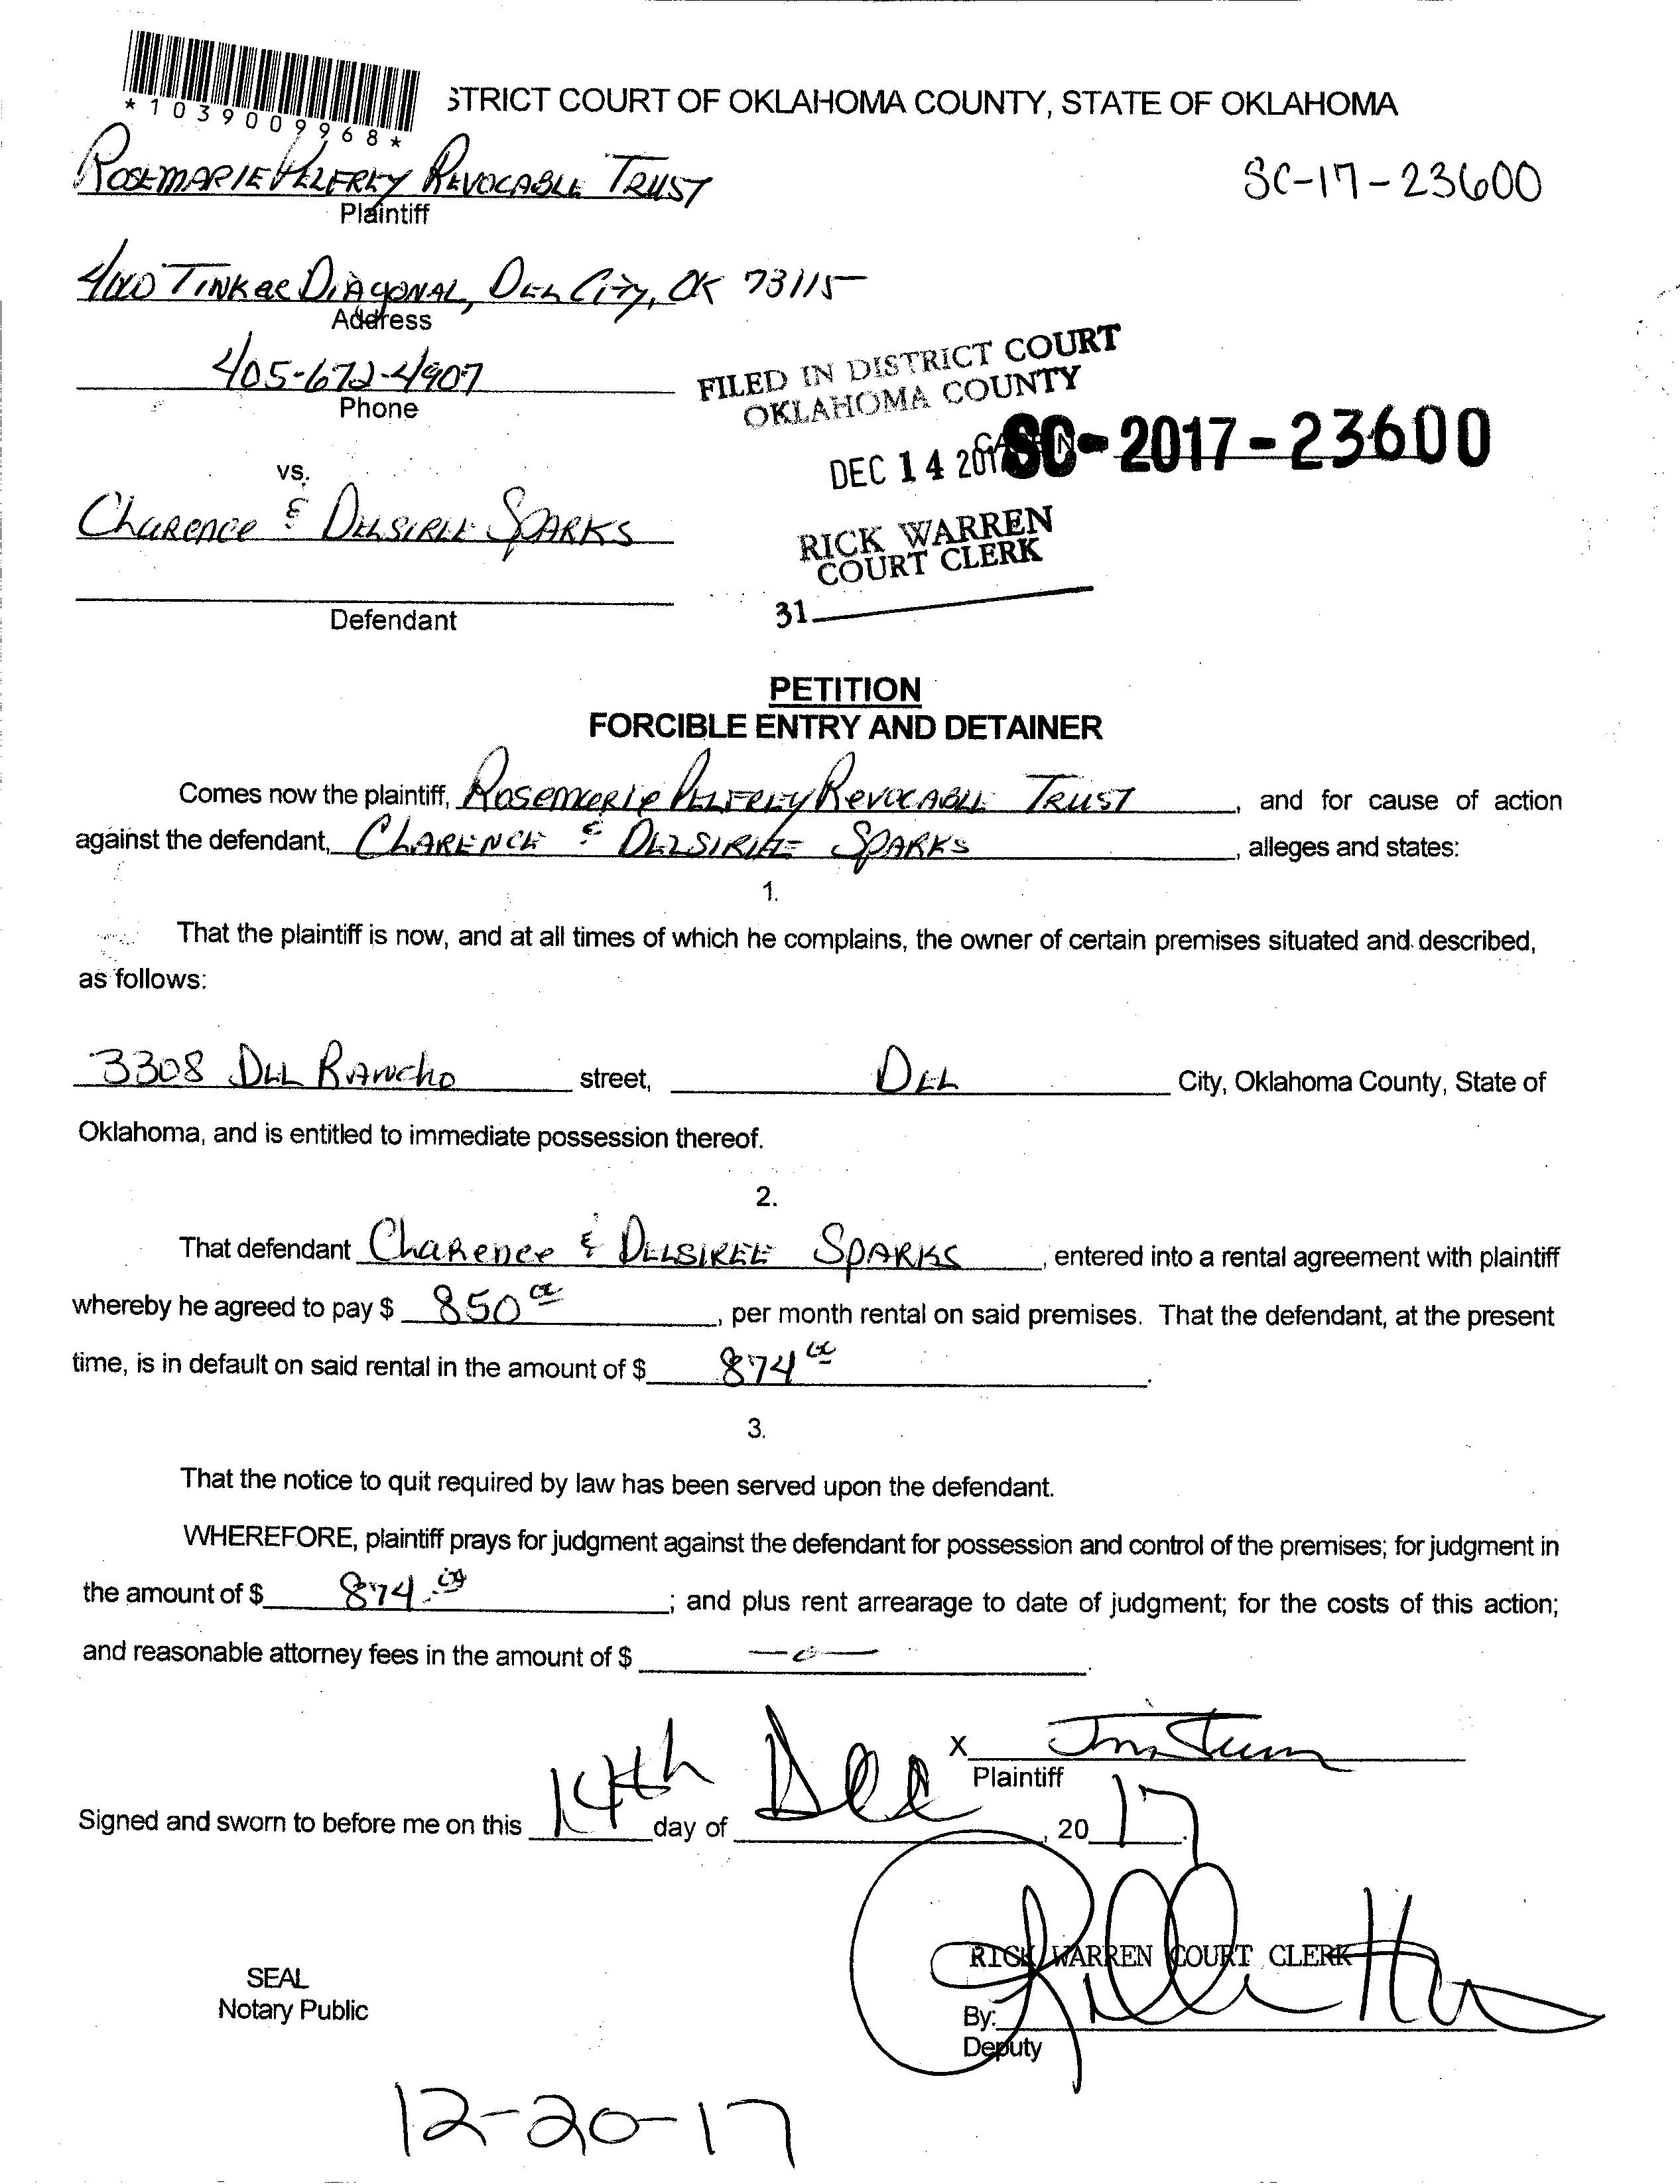 *1039009968*
STRICT COURT OF OKLAHOMA COUNTY, STATE OF OKLAHOMA
ROSEMARIE PELFREY REVOCABLE TRUST
SC-17-23600
Plaintiff
TINKER DIAGONAL, DEL CITY, OK 73115
Address
405-672-4907
Phone
FILED IN DISTRICT COURT
OKLAHOMA COUNTY
DEC 14 201
SC-2017-23600
vs.
Clarence & DEESIREE SPARKS
RICK WARREN
COURT CLERK
31
Defendant
PETITION
FORCIBLE ENTRY AND DETAINER
Comes now the plaintiff, Rosemarie PELFREY REVOCABLE TRUST, and for cause of action
against the defendant, CLARENCE & DEESIREE SPARKS, alleges and states:
1.
That the plaintiff is now, and at all times of which he complains, the owner of certain premises situated and described,
as follows:
3308 DEL RANCHO street, DEL City, Oklahoma County, State of
Oklahoma, and is entitled to immediate possession thereof.
2.
That defendant Clarence & DEESIREE SPARKS, entered into a rental agreement with plaintiff
whereby he agreed to pay $ 850 00, per month rental on said premises. That the defendant, at the present
time, is in default on said rental in the amount of $ 874 00.
3.
That the notice to quit required by law has been served upon the defendant.
WHEREFORE, plaintiff prays for judgment against the defendant for possession and control of the premises; for judgment in
the amount of $ 874.00; and plus rent arrearage to date of judgment; for the costs of this action;
and reasonable attorney fees in the amount of $ —0—.
X
Plaintiff
Signed and sworn to before me on this 14th day of Dec, 2017.
RICK WARREN COURT CLERK
SEAL
Notary Public
By:
Deputy
12-20-17